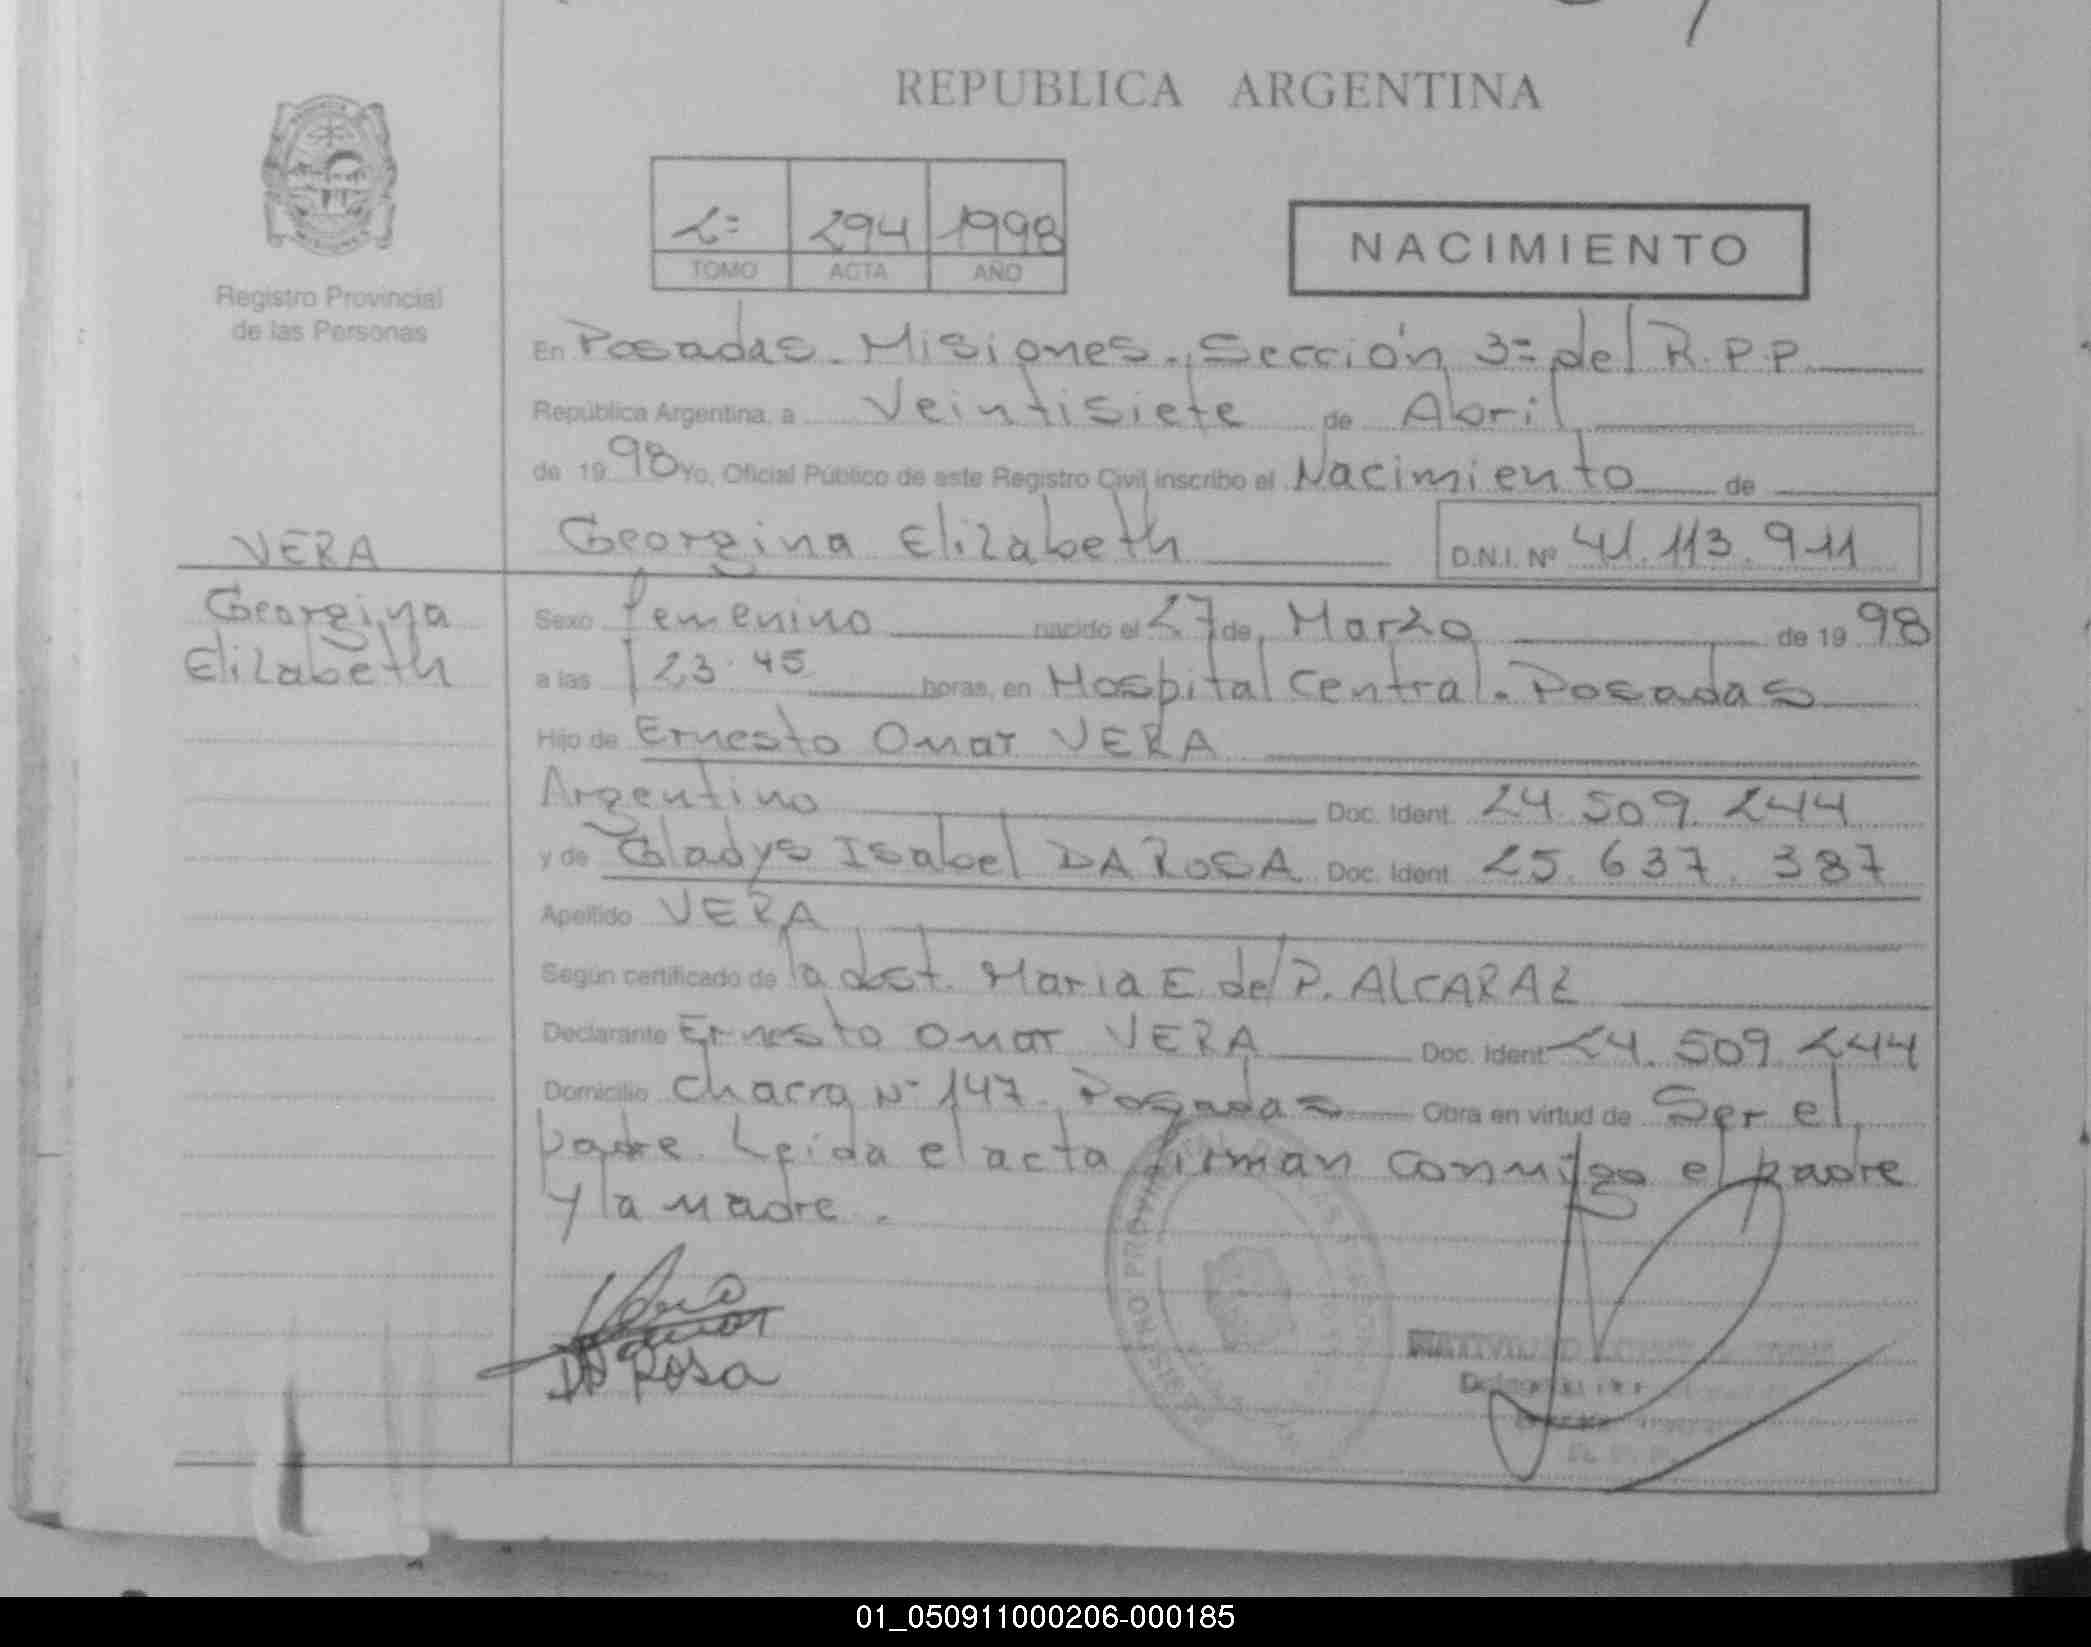 REPUBLICA ARGENTINA
2= 294 1998
TOMO ACTA AÑO
NACIMIENTO
Registro Provincial
de las Personas
En Posadas. Misiones. Sección 3= del R.P.P.
República Argentina, a Veintisiete de Abril
de 1998 Yo, Oficial Público de este Registro Civil inscribo el Nacimiento de
VERA
Georgina Elizabeth D.N.I. Nº 41.113.911
Georgina
Elizabeth
Sexo femenino nacido el 27 de Marzo de 1998
a las 23.45 horas, en Hospital Central. Posadas
Hijo de Ernesto Omar VERA
Argentino Doc. Ident. 24.509.244
y de Gladys Isabel DA ROSA Doc. Ident. 25.637.387
Apellido VERA
Según certificado de la obst. Maria E. del P. ALCARAZ
Declarante Ernesto Omar VERA Doc. Ident. 24.509.244
Domicilio Chacra Nº 147. Posadas Obra en virtud de Ser el
padre. Leida el acta firman conmigo el padre
y la madre.
DA Rosa
01_050911000206-000185